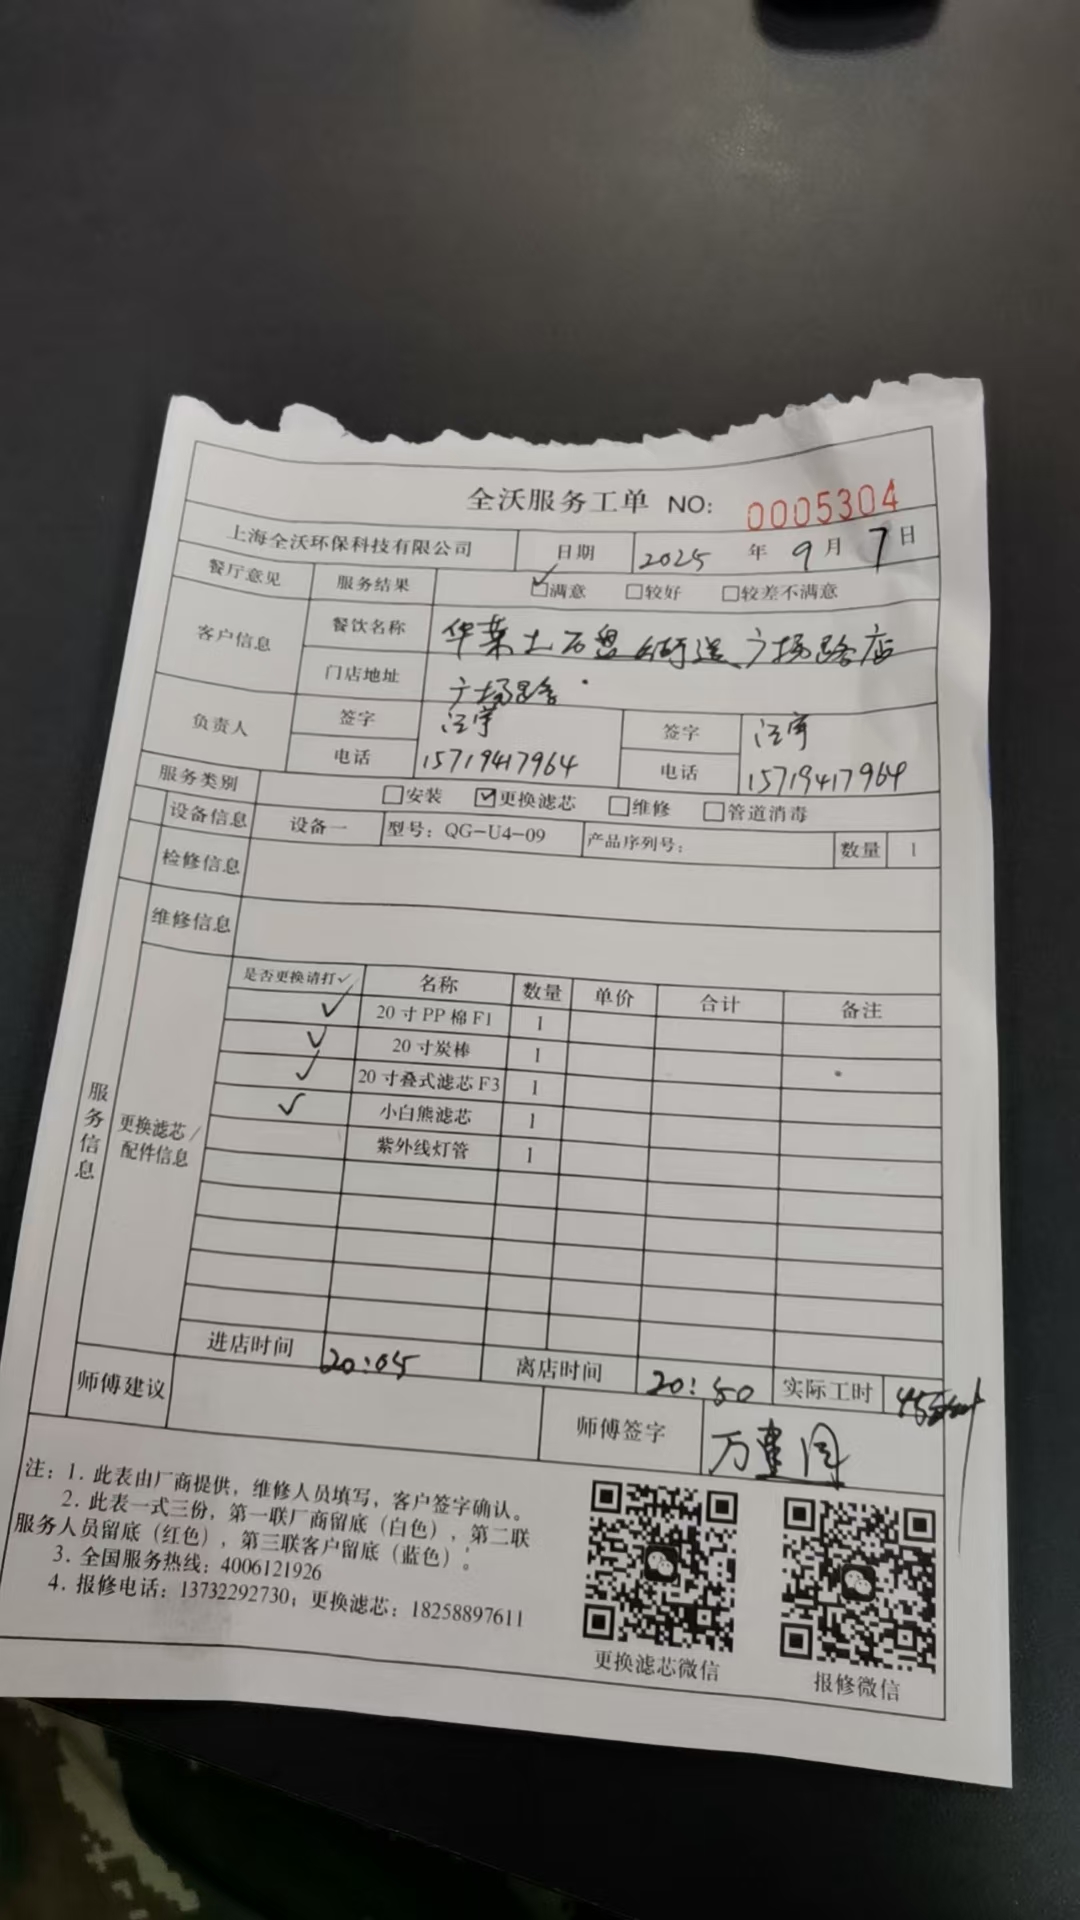 全沃服务工单 NO: 0005304
上海全沃环保科技有限公司 日期 2025 年 9 月 7 日
餐厅意见 服务结果 ☑满意 □较好 □较差不满意
客户信息 餐饮名称 华莱士 广场路店
门店地址 广场路
负责人 签字 汪宇 签字 汪宇
电话 15719417964 电话 15719417964
服务类别 □安装 ☑更换滤芯 □维修 □管道消毒
设备信息 设备一 型号：QG-U4-09 产品序列号： 数量 1
检修信息
维修信息
服务信息
更换滤芯/配件信息
是否更换请打✓ 名称 数量 单价 合计 备注
✓ 20寸PP棉F1 1
✓ 20寸炭棒 1
✓ 20寸叠式滤芯F3 1
✓ 小白熊滤芯 1
紫外线灯管 1
进店时间 20:05 离店时间 20:50 实际工时 45分钟
师傅建议 师傅签字 万
注：1. 此表由厂商提供，维修人员填写，客户签字确认。
2. 此表一式三份，第一联厂商留底（白色），第二联
服务人员留底（红色），第三联客户留底（蓝色）。
3. 全国服务热线：4006121926
4. 报修电话：13732292730；更换滤芯：18258897611
更换滤芯微信 报修微信